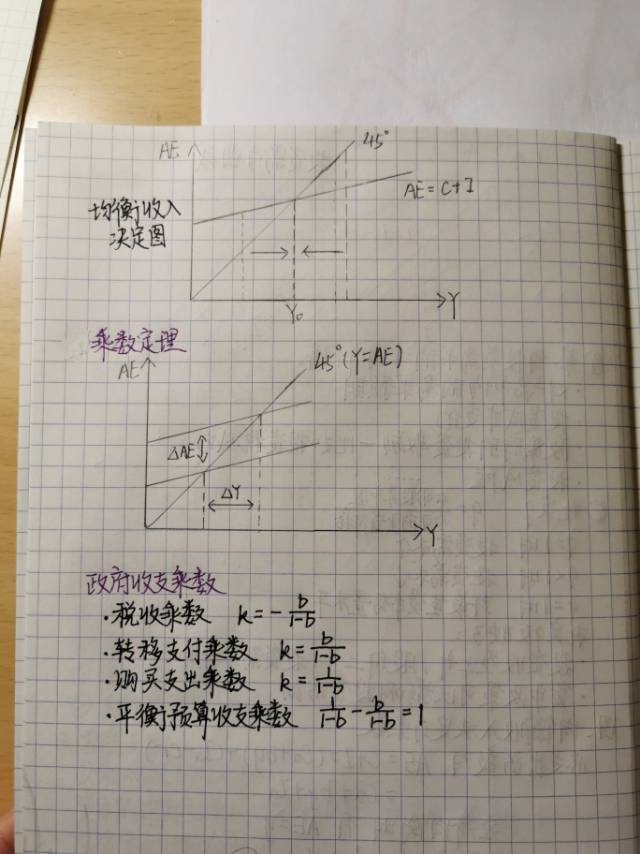 AE
45°
AE=C+I
均衡收入
决定图
Y₀
Y
乘数定理
AE
45°(Y=AE)
ΔAE
ΔY
Y
政府收支乘数
·税收乘数 k=-b/(1-b)
·转移支付乘数 k=b/(1-b)
·购买支出乘数 k=1/(1-b)
·平衡预算收支乘数 1/(1-b)-b/(1-b)=1